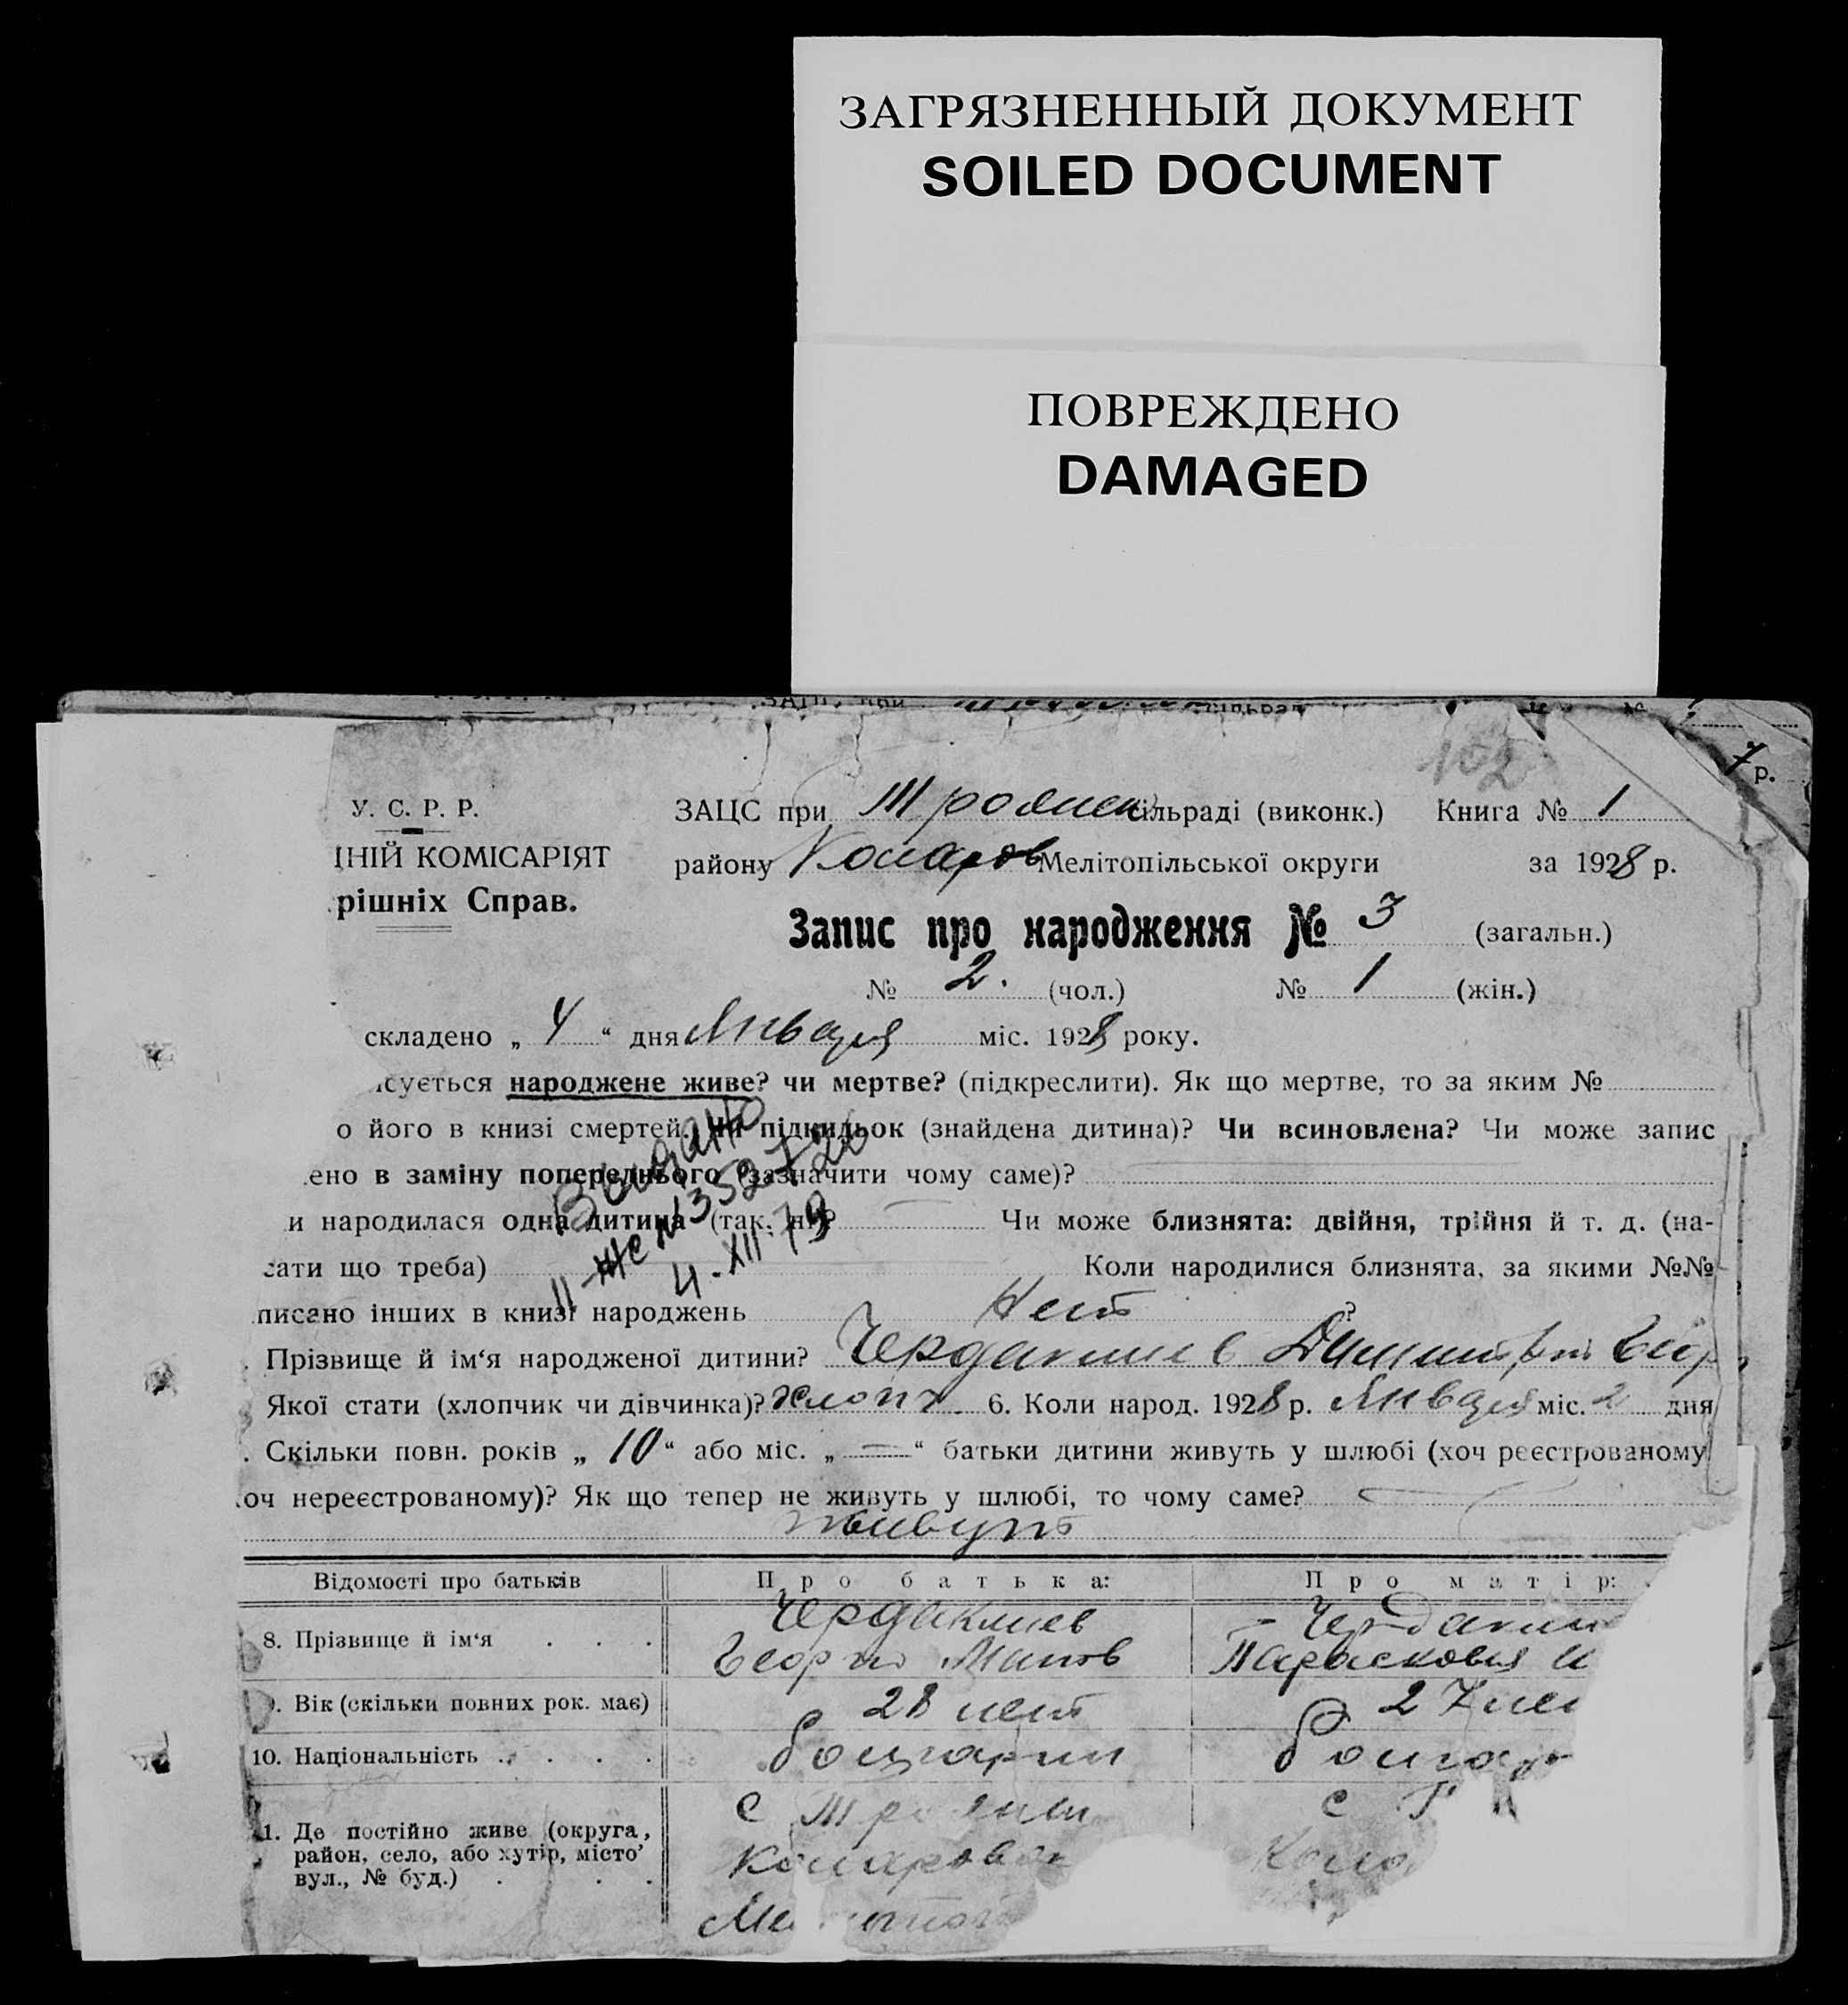 ЗАГРЯЗНЕННЫЙ ДОКУМЕНТ
SOILED DOCUMENT
ПОВРЕЖДЕНО
DAMAGED
р.
У. С. Р. Р.
ЗАЦС при Троянск сільраді (виконк.) Книга № 1
НІЙ КОМІСАРІЯТ
району Коларов Мелітопільської округи за 1928 р.
рішніх Справ.
Запис про народження № 3 (загальн.)
№ 2. (чол.) № 1 (жін.)
складено „ 4 “ дня Января міс. 1928 року.
сується народжене живе? чи мертве? (підкреслити). Як що мертве, то за яким №
о його в книзі смертей. Чи підкидьок (знайдена дитина)? Чи всиновлена? Чи може запис
ено в заміну попереднього (зазначити чому саме)?
и народилася одна дитина (так, ні)? Чи може близнята: двійня, трійня й т. д. (на-
сати що треба) Коли народилися близнята, за якими №№
писано інших в книзі народжень Нет ?
Выдано
4-XII-79
Прізвище й ім‘я народженої дитини? Чердаклиев Димитрий
Якої стати (хлопчик чи дівчинка)? хлопч. 6. Коли народ. 1928 р. Января міс. 2 дня
Скільки повн. років „ 10 “ або міс. „ — “ батьки дитини живуть у шлюбі (хоч реєстрованому
оч нереєстрованому)? Як що тепер не живуть у шлюбі, то чому саме?
живут
Відомості про батьків Про батька: Про матір:
8. Прізвище й ім‘я Чердаклиев Чердакли
Георгий Парасковия
Вік (скільки повних рок. має) 28 лет 27 ле
10. Національність болгарин болгар
1. Де постійно живе (округа, с Трояны с Т
район, село, або хутір, місто’ Коларовск Кола
вул., № буд.) Ме